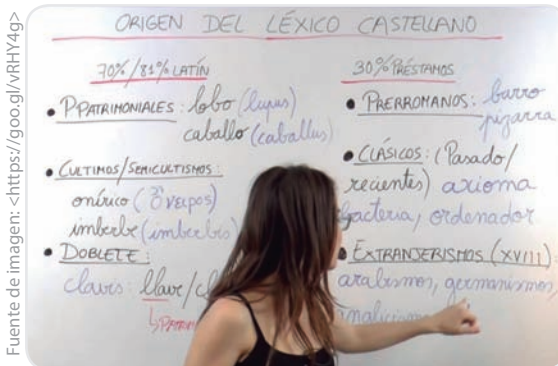 Fuente de imagen: <https://goo.gl/vRHY4g>
ORIGEN DEL LÉXICO CASTELLANO
70%/81% LATÍN
• PPATRIMONIALES: lobo (lupus)
caballo (caballus)
• CULTIMOS/SEMICULTISMOS:
onírico (ὄνειρος)
imberbe (imberbis)
• DOBLETE:
clavis: llave/
30% PRÉSTAMOS
• PRERROMANOS: barro
pizarra
• CLÁSICOS: (Pasado/
recientes) axioma
bacteria, ordenador
• EXTRANJERISMOS (XVIII):
arabismos, germanismos,